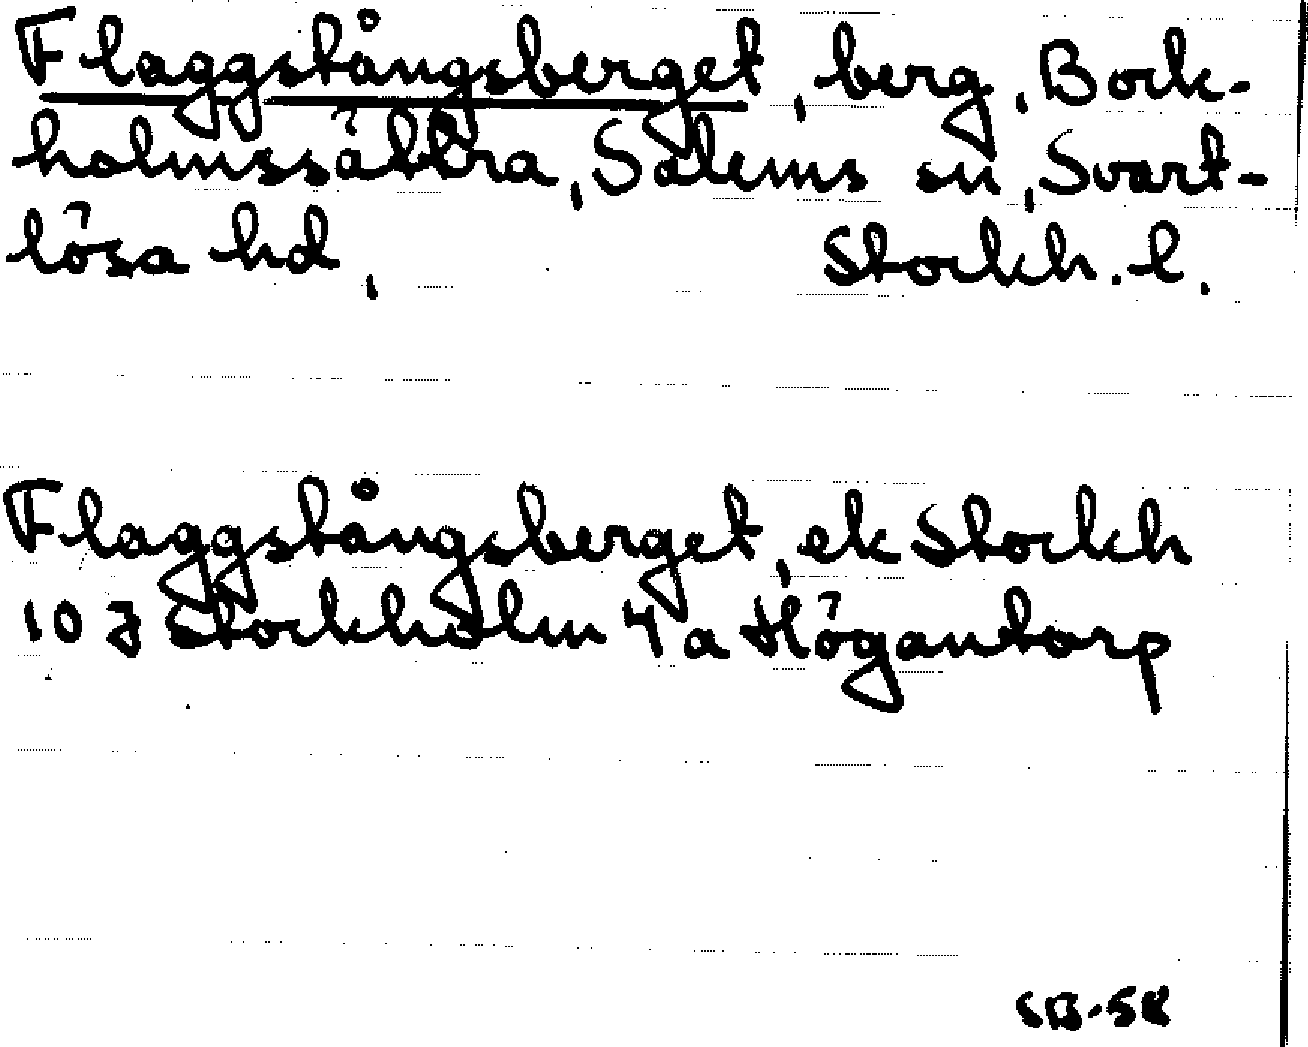 Flaggstångsberget, berg, Bock-
holmssättra, Salems sn, Svart-
lösa hd, Stockh. l.
Flaggstångsberget, ek Stockh
10 J Stockholm 4 a Högantorp
SB-58